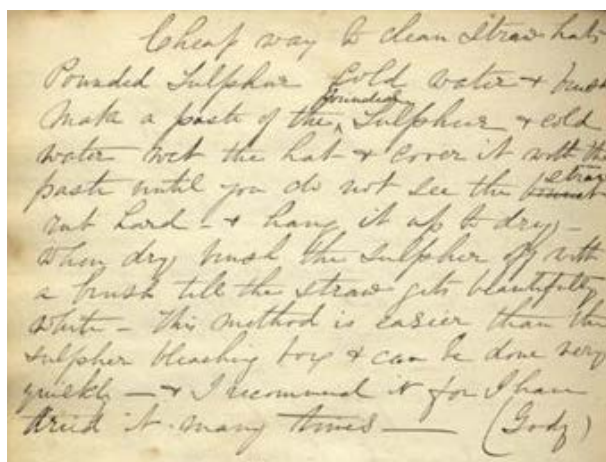 Cheap way to clean Straw hats
Pounded Sulphur Cold water & brush
Make a paste of the pounded Sulphur & cold
water wet the hat & cover it with the
paste until you do not see the straw
rub hard - & hang it up to dry -
when dry brush the sulpher off with
a brush till the straw gets beautifully
white - This method is easier than the
sulpher bleaching box & can be done very
quickly - & I recommend it for I have
tried it many times - (Gody)